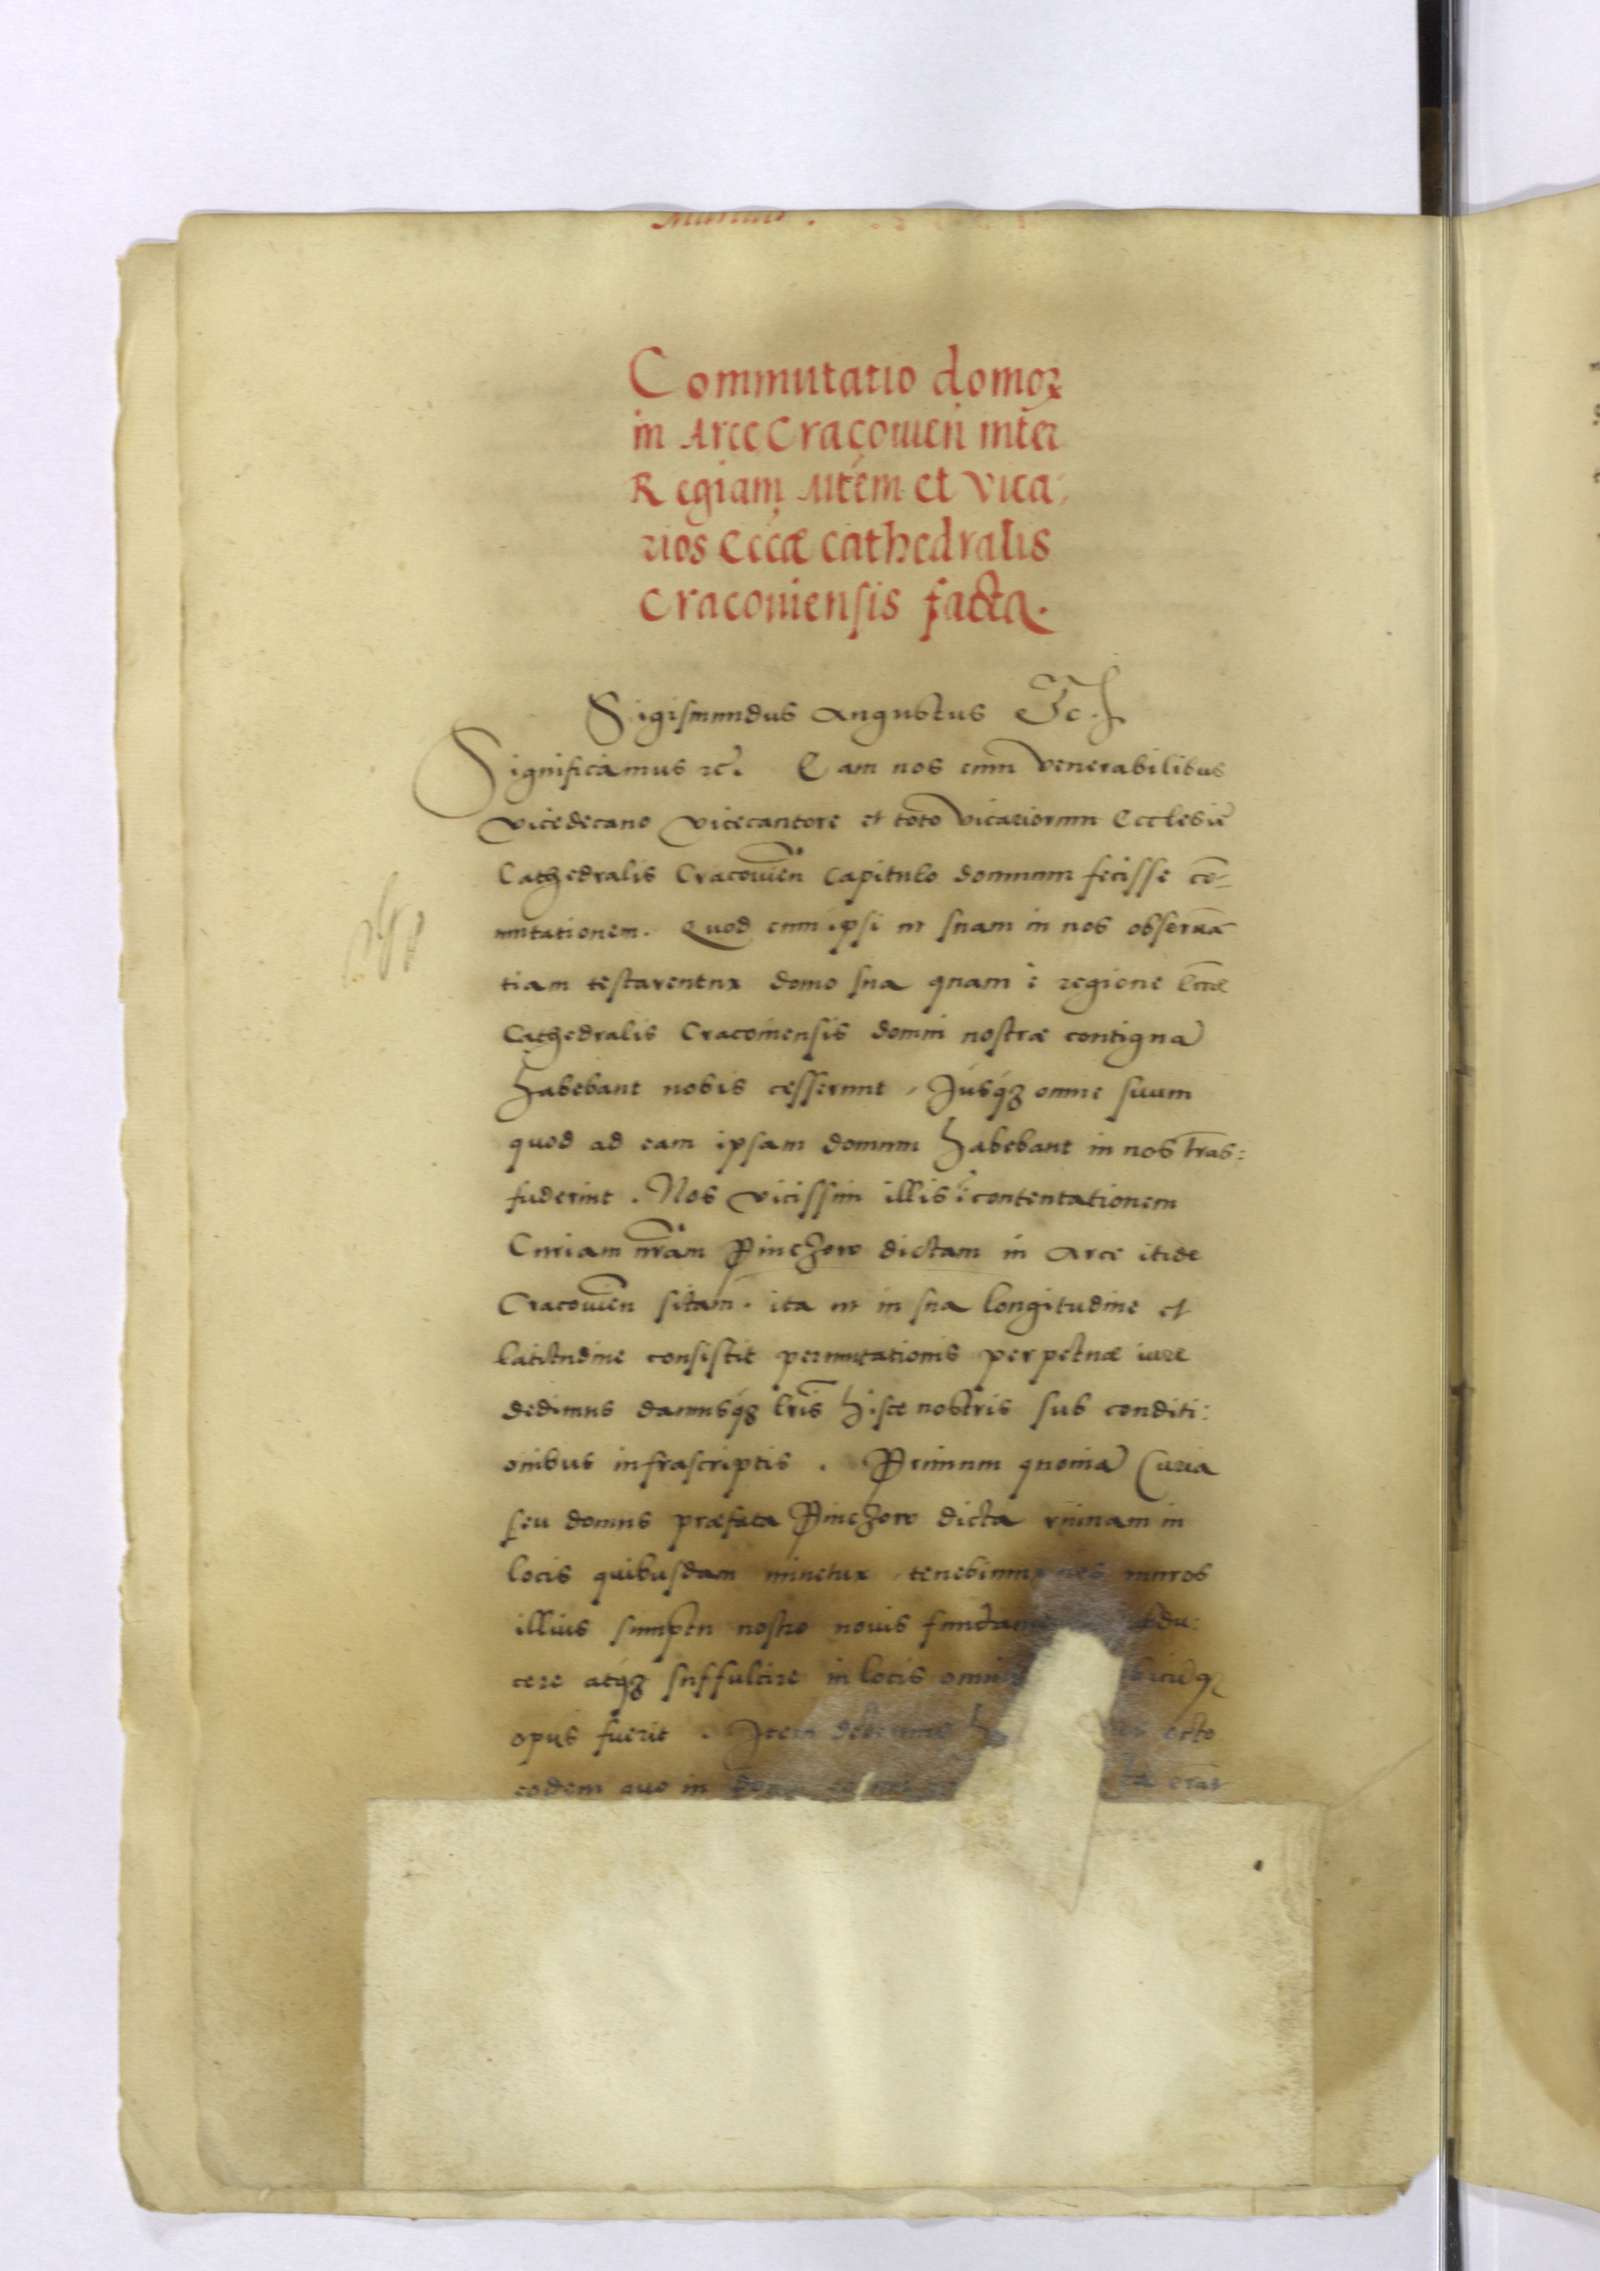 Commutatio domoꝝ
in Arce Cracouien̄ inter
Regiam Mtem et vica:
rios Eccæ cathedralis
Cracouiensis facta.
Sigismundus Augustus Ec.
Significamus ꝛc. Eam nos cum venerabilibus
vicedecano vicecantore et toto vicariorum Ecclesiæ
Cathedralis Cracouien̄ Capitulo domuum fecisse cō-
mutationem. Quod cum ipsi ut suam in nos obseruā
tiam testarentur domo sua quam è regione Eccæ
Cathedralis Cracouiensis domui nostræ contiguā
habebant nobis cesserunt, Jusqꝫ omne suum
quod ad eam ipsam domum habebant in nos trās:
fuderint. Nos vicissim illis contentationem
Curiam nr̄am Pinczow dictam in Arce itidē
Cracouien̄ sitam. ita ut in sua longitudine et
latitudine consistit permutationis perpetuæ iure
dedimus damusqꝫ lr̄is hisce nostris sub conditi:
onibus infrascriptis. Primum quoniā Curia
seu domus præfata Pinczow dicta ruinam in
locis quibusdam minetur, tenebimur nos muros
illius sumptu nostro nouis
cere atqꝫ suffulcire in locis
opus fuerit. Item debemus
eodem quo in erat